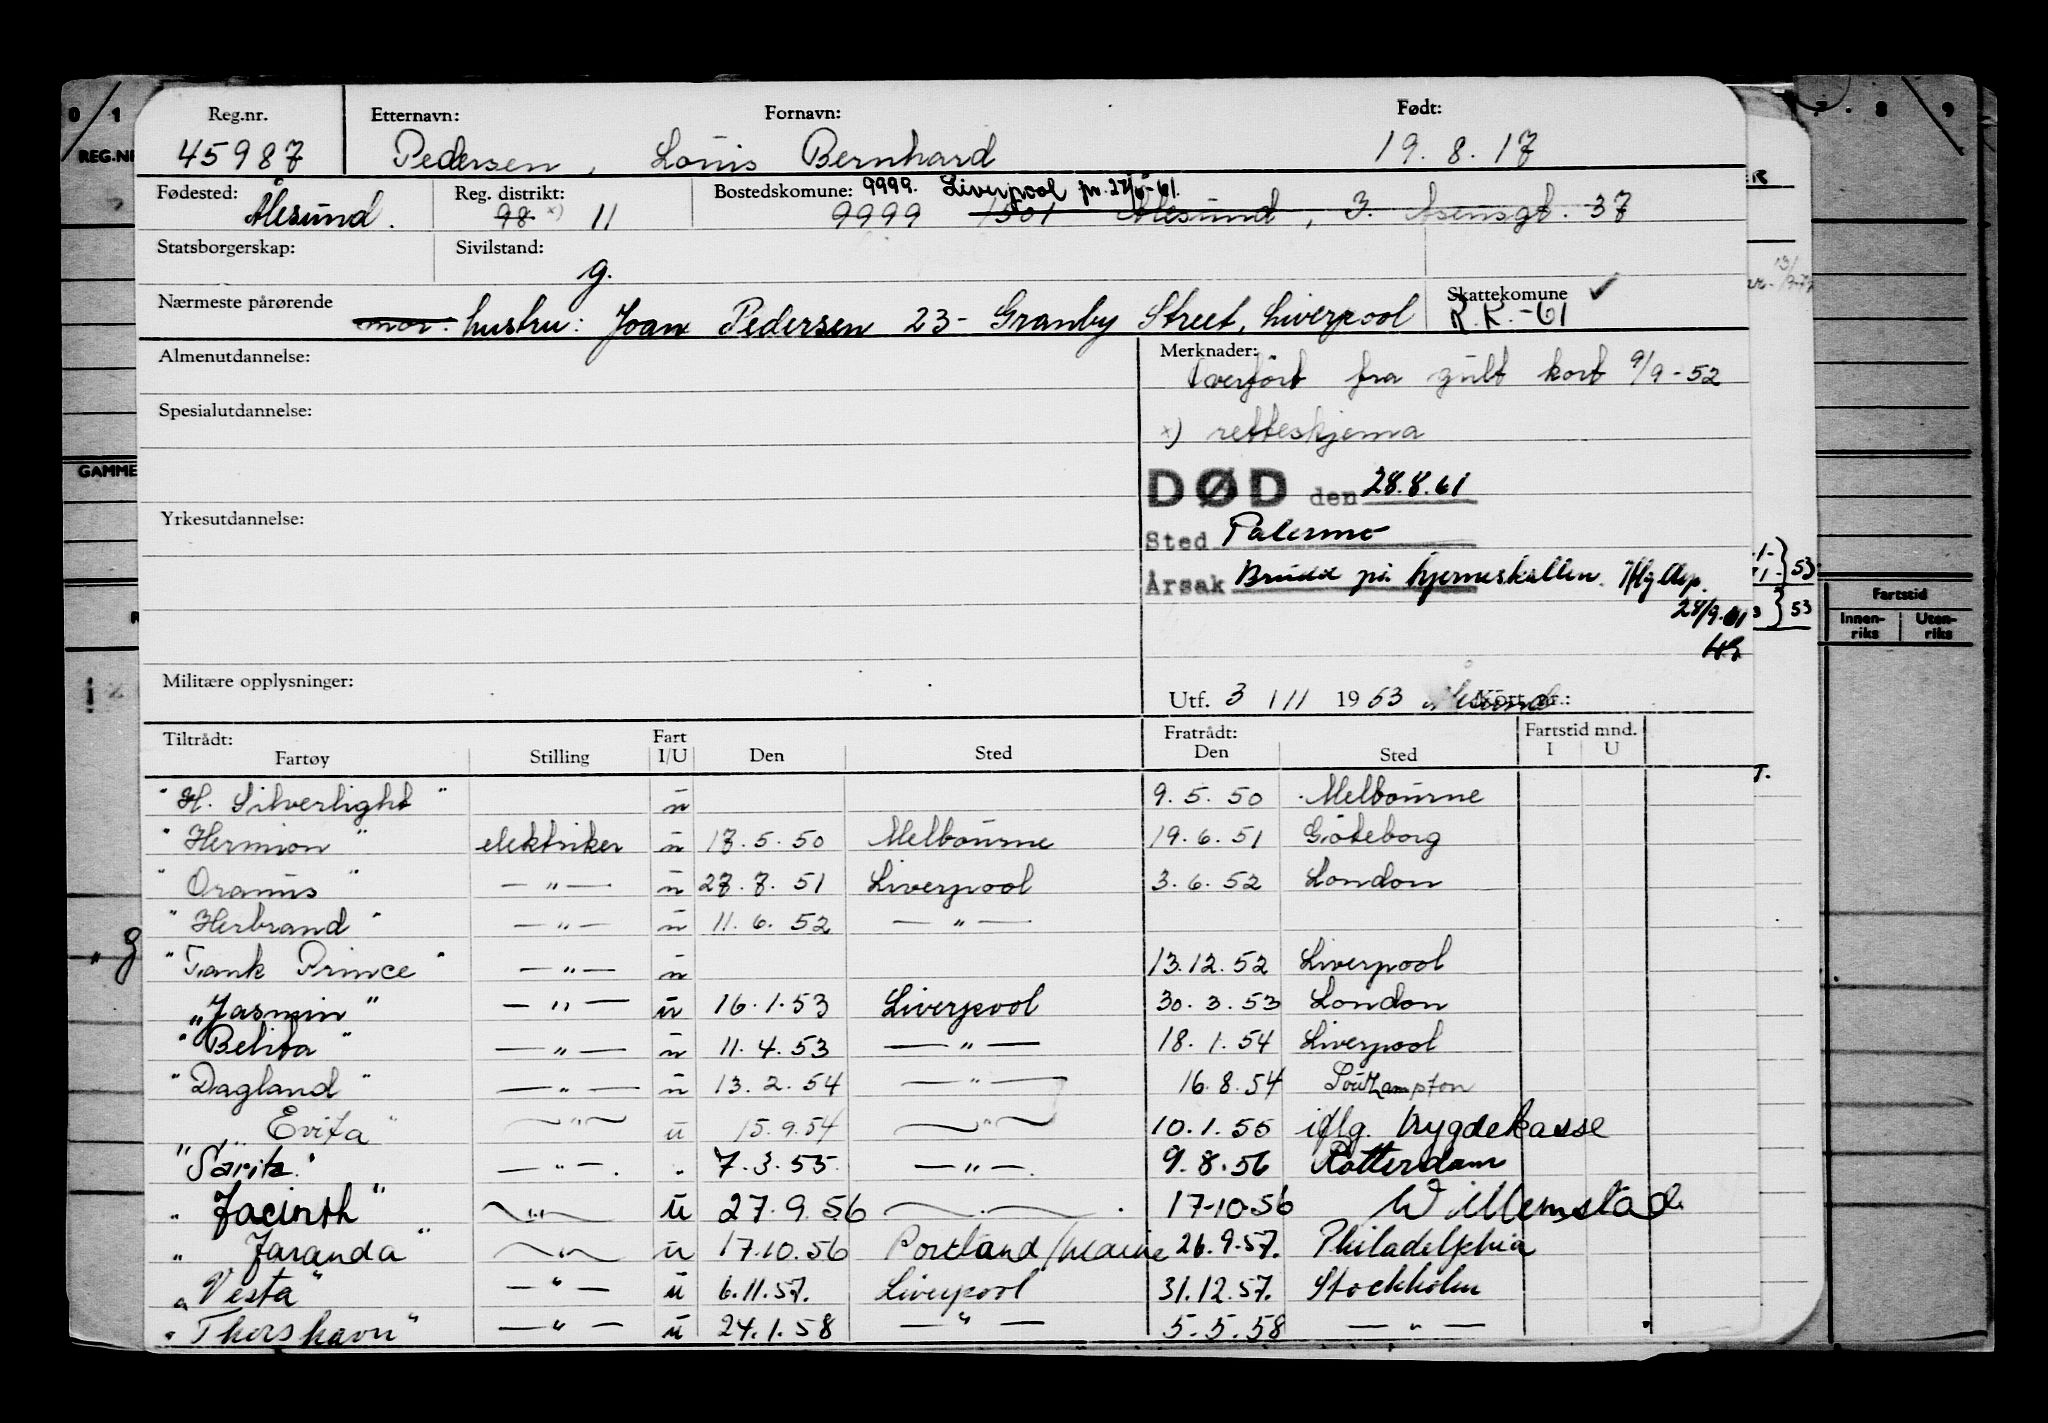 Reg.nr. Etternavn: Fornavn: Født:
45987 Pedersen, Louis Bernhard 19.8.17
Fødested: Reg. distrikt: Bostedskomune: 9999. Liverpool pr. 27/6-61.
Ålesund. 98 x) 11 9999 1501 Ålesund, 3. Åsensgt. 37
Statsborgerskap: Sivilstand:
g.
Nærmeste pårørende Skattekomune ✓
mor: hustru: Joan Pedersen 23- Granby Street, Liverpool R.K.-61
Almenutdannelse: Merknader:
Overført fra gult kort 9/9-52
Spesialutdannelse:
x) retteskjema
DØD den 28.8.61
Yrkesutdannelse:
Sted Palermo
Årsak Brudd på hjerneskallen. Iflg.
28/9.61
Militære opplysninger:
Utf. 3 / 11 1953 Ålesund Kort nr.:
Tiltrådt: Fart Fratrådt: Fartstid mnd.
Fartøy Stilling I/U Den Sted Den Sted I U
"H. Silverlight" u 9.5.50 Melbourne
"Hermion" elektriker u 17.5.50 Melbourne 19.6.51 Göteborg
"Oranus" — " — u 27.7.51 Liverpool 3.6.52 London
"Herbrand" — " — u 11.6.52 — " —
"Tank Prince" — " — u 13.12.52 Liverpool
"Jasmin" — " — u 16.1.53 Liverpool 30.3.53 London
"Belita" — " — u 11.4.53 — " — 18.1.54 Liverpool
"Dagland" — " — u 13.2.54 — " — 16.8.54 Southampton
"Evita" — " — u 15.9.54 — " — 10.1.55 iflg. trygdekasse
"Sarita" — " —. " 7.3.55. — " —. 9.8.56 Rotterdam
"Jacinth" — " — u 27.9.56 — " — 17-10-56 Willemstad
"Jaranda" — " — u 17.10.56 Portland/Maine 26.9.57. Philadelphia
"Vesta" — " — u 6.11.57. Liverpool 31.12.57. Stockholm
"Thorshavn" — " — u 24.1.58 — " — 5.5.58 — " —
0 1
REG.NR
GAMME
8 9
53
53
Fartstid
Innen-riks Uten-riks